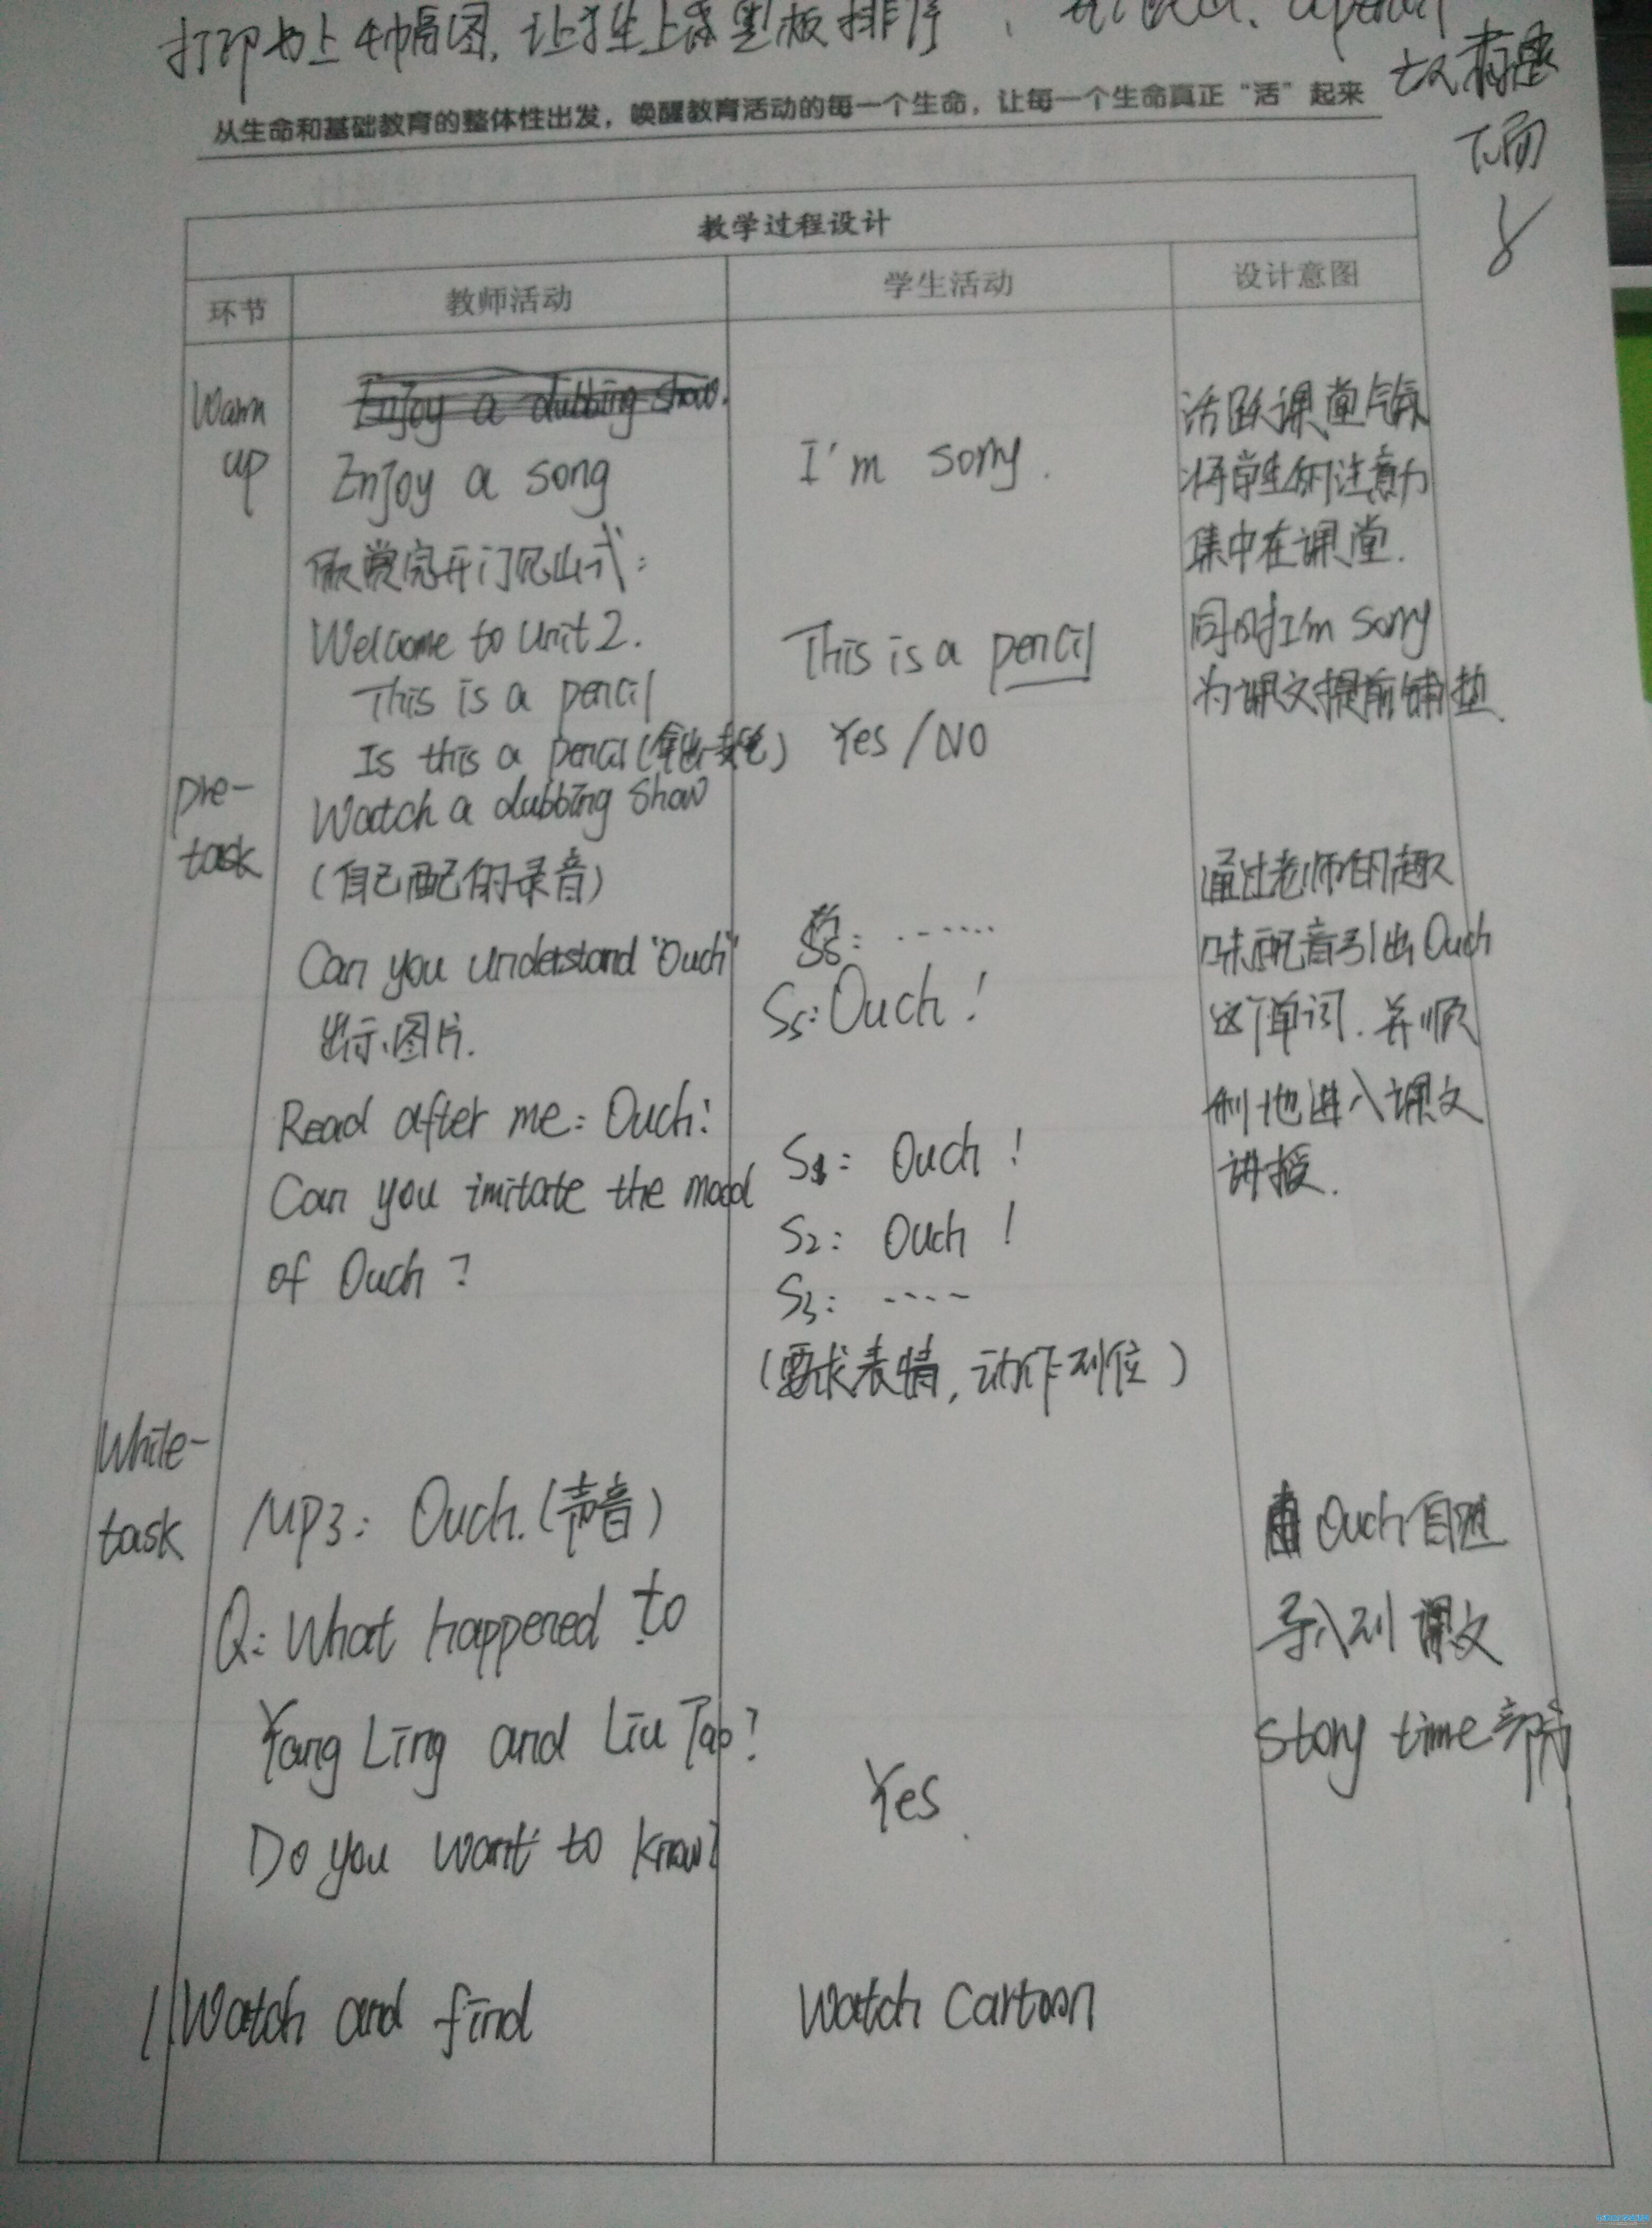 打印书上4幅图,让学生上来黑板排序
故事
下面
从生命和基础教育的整体性出发，唤醒教育活动的每一个生命，让每一个生命真正“活”起来
教学过程设计
环节 教师活动 学生活动 设计意图
Warm up
Enjoy a dubbing show.
Enjoy a song
欣赏完开门见山式:
Welcome to Unit 2.
This is a pencil
Is this a pencil
I'm sorry.
This is a pencil
Yes / NO
活跃课堂气氛
将学生的注意力
集中在课堂.
同时I'm sorry
为课文提前铺垫.
pre-
task
Watch a dubbing show
(自己配的录音)
Can you understand "Ouch"
出示图片.
Read after me: Ouch!
Can you imitate the mood
of Ouch ?
Ss: ......
Ss: Ouch !
S1: Ouch !
S2: Ouch !
S3: ....
(要求表情,动作到位)
通过老师的趣
味配音引出Ouch
这个单词.并顺
利地进入课文
讲授.
While-
task
MP3: Ouch.(声音)
Q: What happened to
Yang Ling and Liu Tao?
Do you want to know?
Yes.
由Ouch自然
导入到课文
Story time部分
1. Watch and find
Watch Cartoon